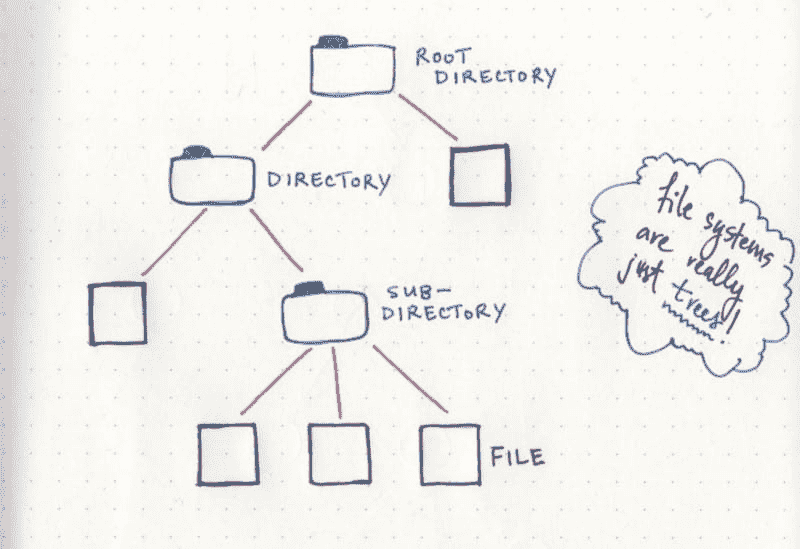 ROOT
DIRECTORY
DIRECTORY
SUB-
DIRECTORY
FILE
file systems
are really
just trees!